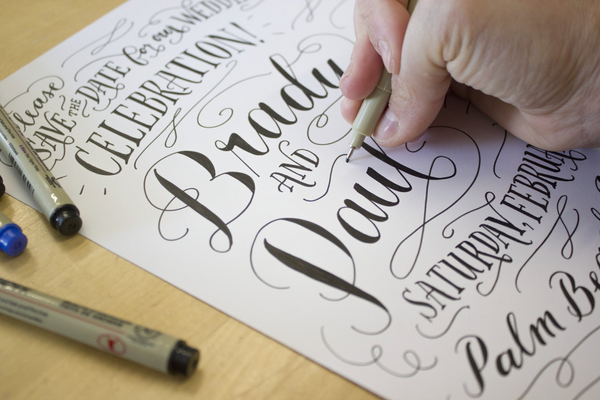 Please
SAVE THE DATE for our WEDDING
CELEBRATION!
Brady
AND
Paul
SATURDAY, FEBRU
Palm Bea